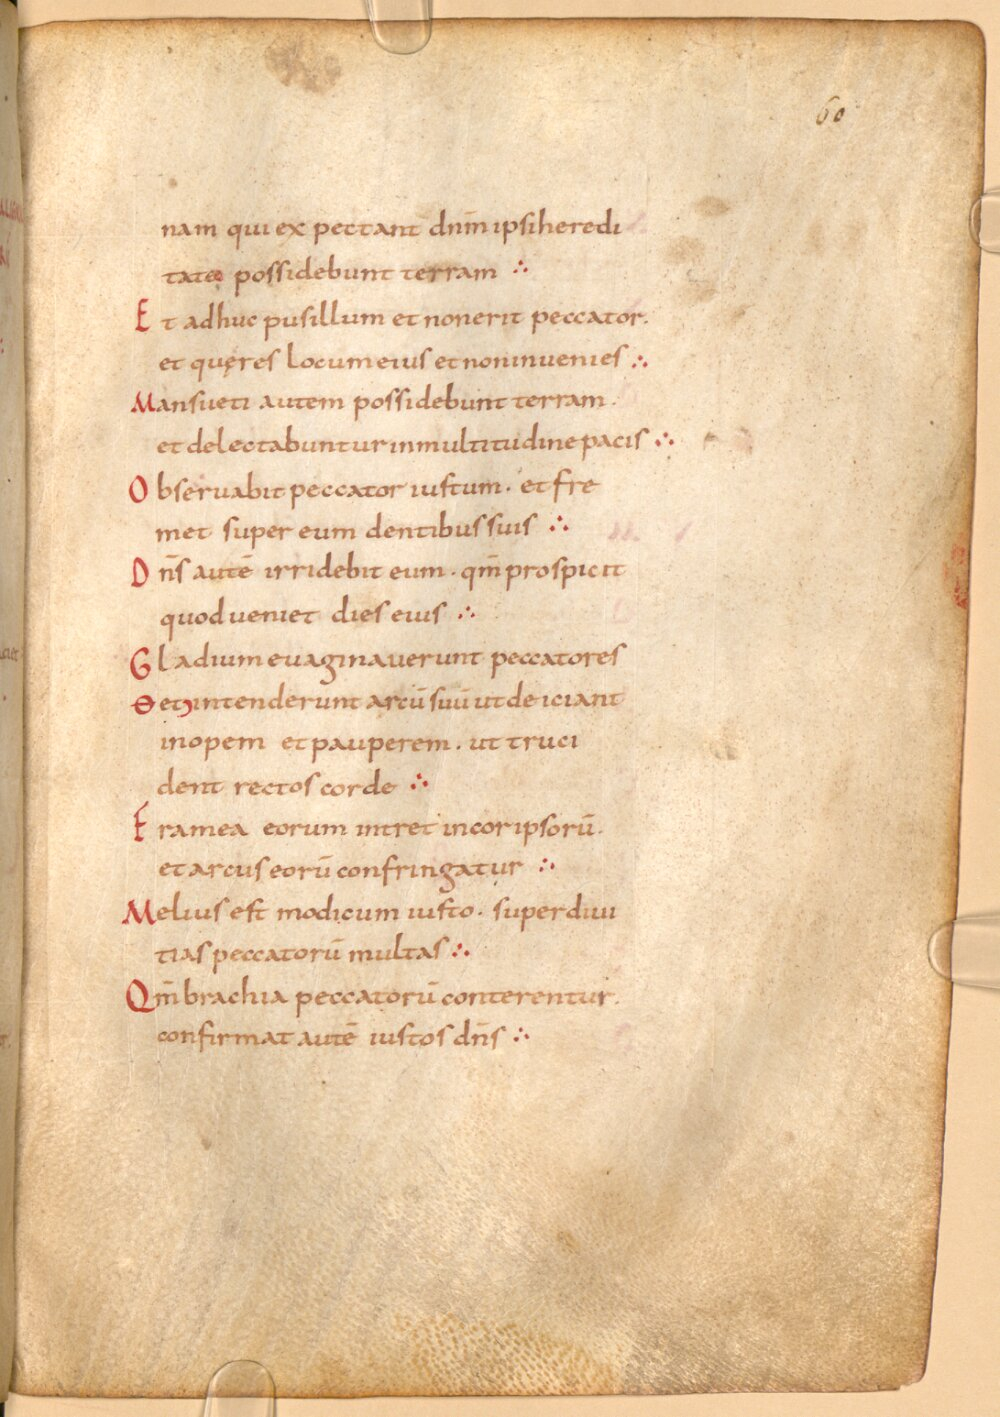 60
nam qui ex pectant dn̄m ipsi heredi
tate possidebunt terram ∴
Et adhuc pusillum et non erit peccator.
et quęres locum eius et non invenies ∴
Mansueti autem possidebunt terram.
et delectabuntur in multitudine pacis ∴
Observabit peccator iustum. et fre
met super eum dentibus suis ∴
Dn̄s autē irridebit eum. qm̄ prospicit
quod veniet dies eius ∴
Gladium evaginaverunt peccatores
et intenderunt arcū suū ut deiciant
inopem et pauperem. ut truci
dent rectos corde ∴
Framea eorum intret in cor ipsorū.
et arcus eorū confringatur ∴
Melius est modicum iusto. super divi
tias peccatorū multas ∴
Qm̄ brachia peccatorū conterentur.
confirmat autē iustos dn̄s ∴